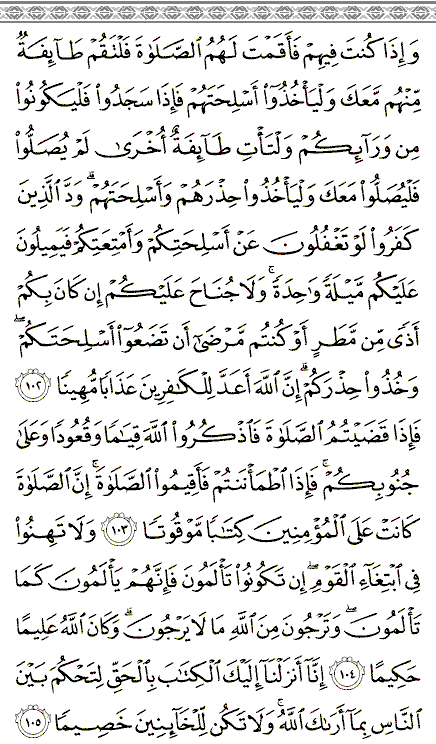 وَإِذَا كُنتَ فِيهِمْ فَأَقَمْتَ لَهُمُ ٱلصَّلَوٰةَ فَلْتَقُمْ طَآئِفَةٌ
مِّنْهُم مَّعَكَ وَلْيَأْخُذُوٓا۟ أَسْلِحَتَهُمْ فَإِذَا سَجَدُوا۟ فَلْيَكُونُوا۟
مِن وَرَآئِكُمْ وَلْتَأْتِ طَآئِفَةٌ أُخْرَىٰ لَمْ يُصَلُّوا۟
فَلْيُصَلُّوا۟ مَعَكَ وَلْيَأْخُذُوا۟ حِذْرَهُمْ وَأَسْلِحَتَهُمْ ۗ وَدَّ ٱلَّذِينَ
كَفَرُوا۟ لَوْ تَغْفُلُونَ عَنْ أَسْلِحَتِكُمْ وَأَمْتِعَتِكُمْ فَيَمِيلُونَ
عَلَيْكُم مَّيْلَةً وَٰحِدَةً ۚ وَلَا جُنَاحَ عَلَيْكُمْ إِن كَانَ بِكُمْ
أَذًى مِّن مَّطَرٍ أَوْ كُنتُم مَّرْضَىٰٓ أَن تَضَعُوٓا۟ أَسْلِحَتَكُمْ ۖ
وَخُذُوا۟ حِذْرَكُمْ ۗ إِنَّ ٱللَّهَ أَعَدَّ لِلْكَـٰفِرِينَ عَذَابًا مُّهِينًا ١٠٢
فَإِذَا قَضَيْتُمُ ٱلصَّلَوٰةَ فَٱذْكُرُوا۟ ٱللَّهَ قِيَـٰمًا وَقُعُودًا وَعَلَىٰ
جُنُوبِكُمْ ۚ فَإِذَا ٱطْمَأْنَنتُمْ فَأَقِيمُوا۟ ٱلصَّلَوٰةَ ۚ إِنَّ ٱلصَّلَوٰةَ
كَانَتْ عَلَى ٱلْمُؤْمِنِينَ كِتَـٰبًا مَّوْقُوتًا ١٠٣ وَلَا تَهِنُوا۟
فِى ٱبْتِغَآءِ ٱلْقَوْمِ ۖ إِن تَكُونُوا۟ تَأْلَمُونَ فَإِنَّهُمْ يَأْلَمُونَ كَمَا
تَأْلَمُونَ ۖ وَتَرْجُونَ مِنَ ٱللَّهِ مَا لَا يَرْجُونَ ۗ وَكَانَ ٱللَّهُ عَلِيمًا
حَكِيمًا ١٠٤ إِنَّآ أَنزَلْنَآ إِلَيْكَ ٱلْكِتَـٰبَ بِٱلْحَقِّ لِتَحْكُمَ بَيْنَ
ٱلنَّاسِ بِمَآ أَرَىٰكَ ٱللَّهُ ۚ وَلَا تَكُن لِّلْخَآئِنِينَ خَصِيمًا ١٠٥